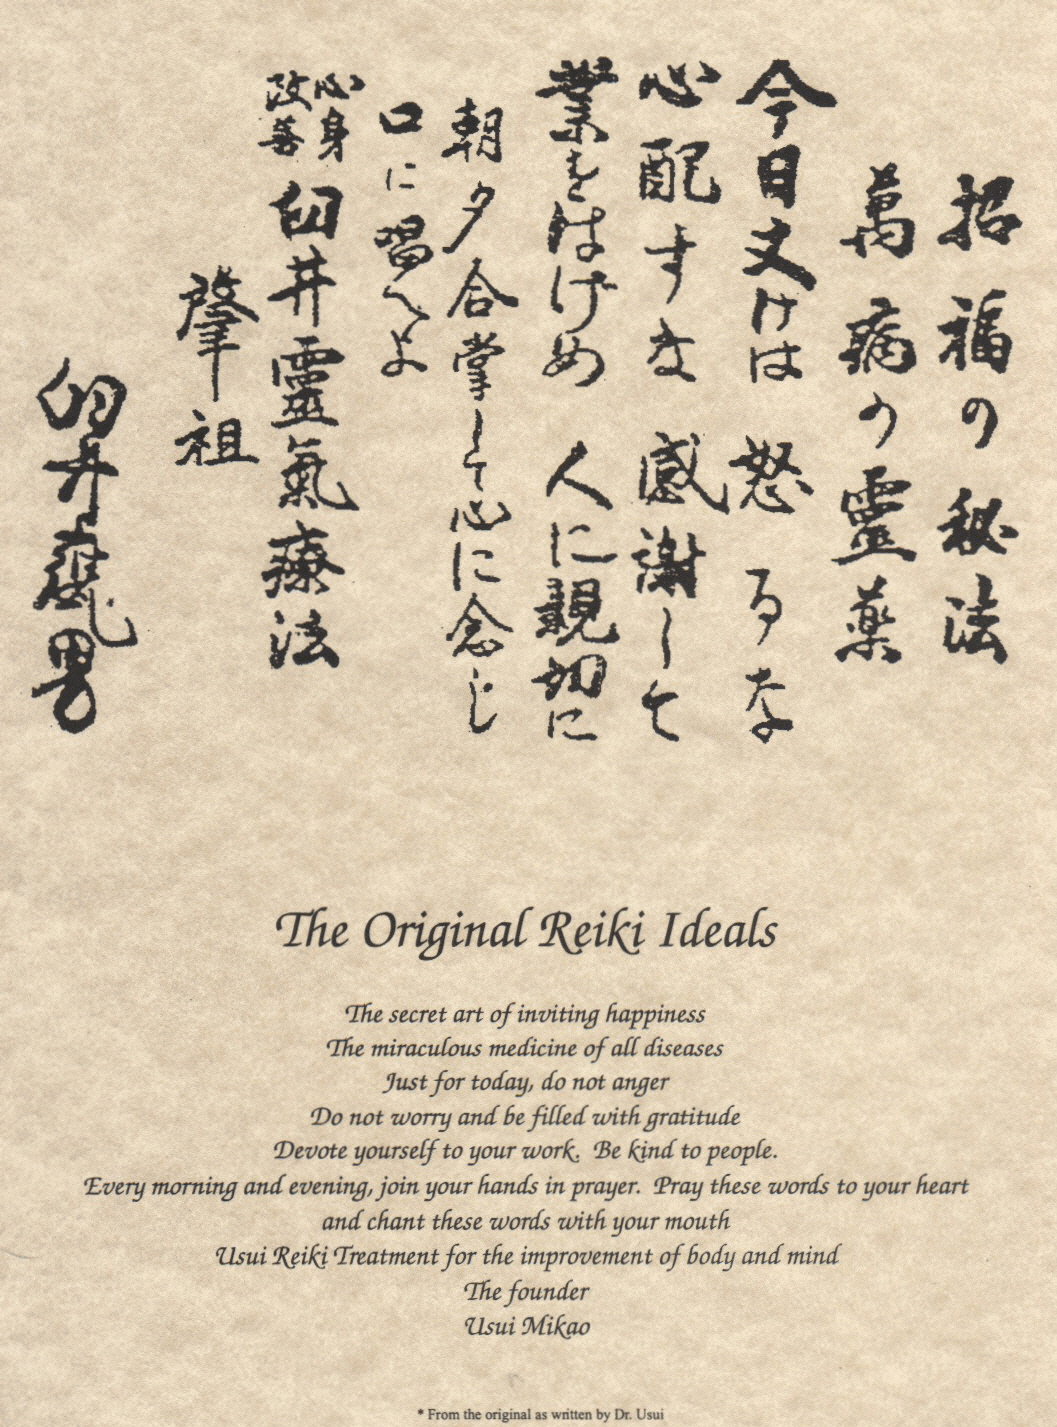 招福の秘法
萬病の霊薬
今日丈けは 怒るな
心配すな 感謝して
業をはげめ 人に親切に
朝夕合掌して心に念じ
口に唱へよ
心身改善 臼井靈氣療法
肇祖
臼井甕男
The Original Reiki Ideals
The secret art of inviting happiness
The miraculous medicine of all diseases
Just for today, do not anger
Do not worry and be filled with gratitude
Devote yourself to your work. Be kind to people.
Every morning and evening, join your hands in prayer. Pray these words to your heart
and chant these words with your mouth
Usui Reiki Treatment for the improvement of body and mind
The founder
Usui Mikao
* From the original as written by Dr. Usui